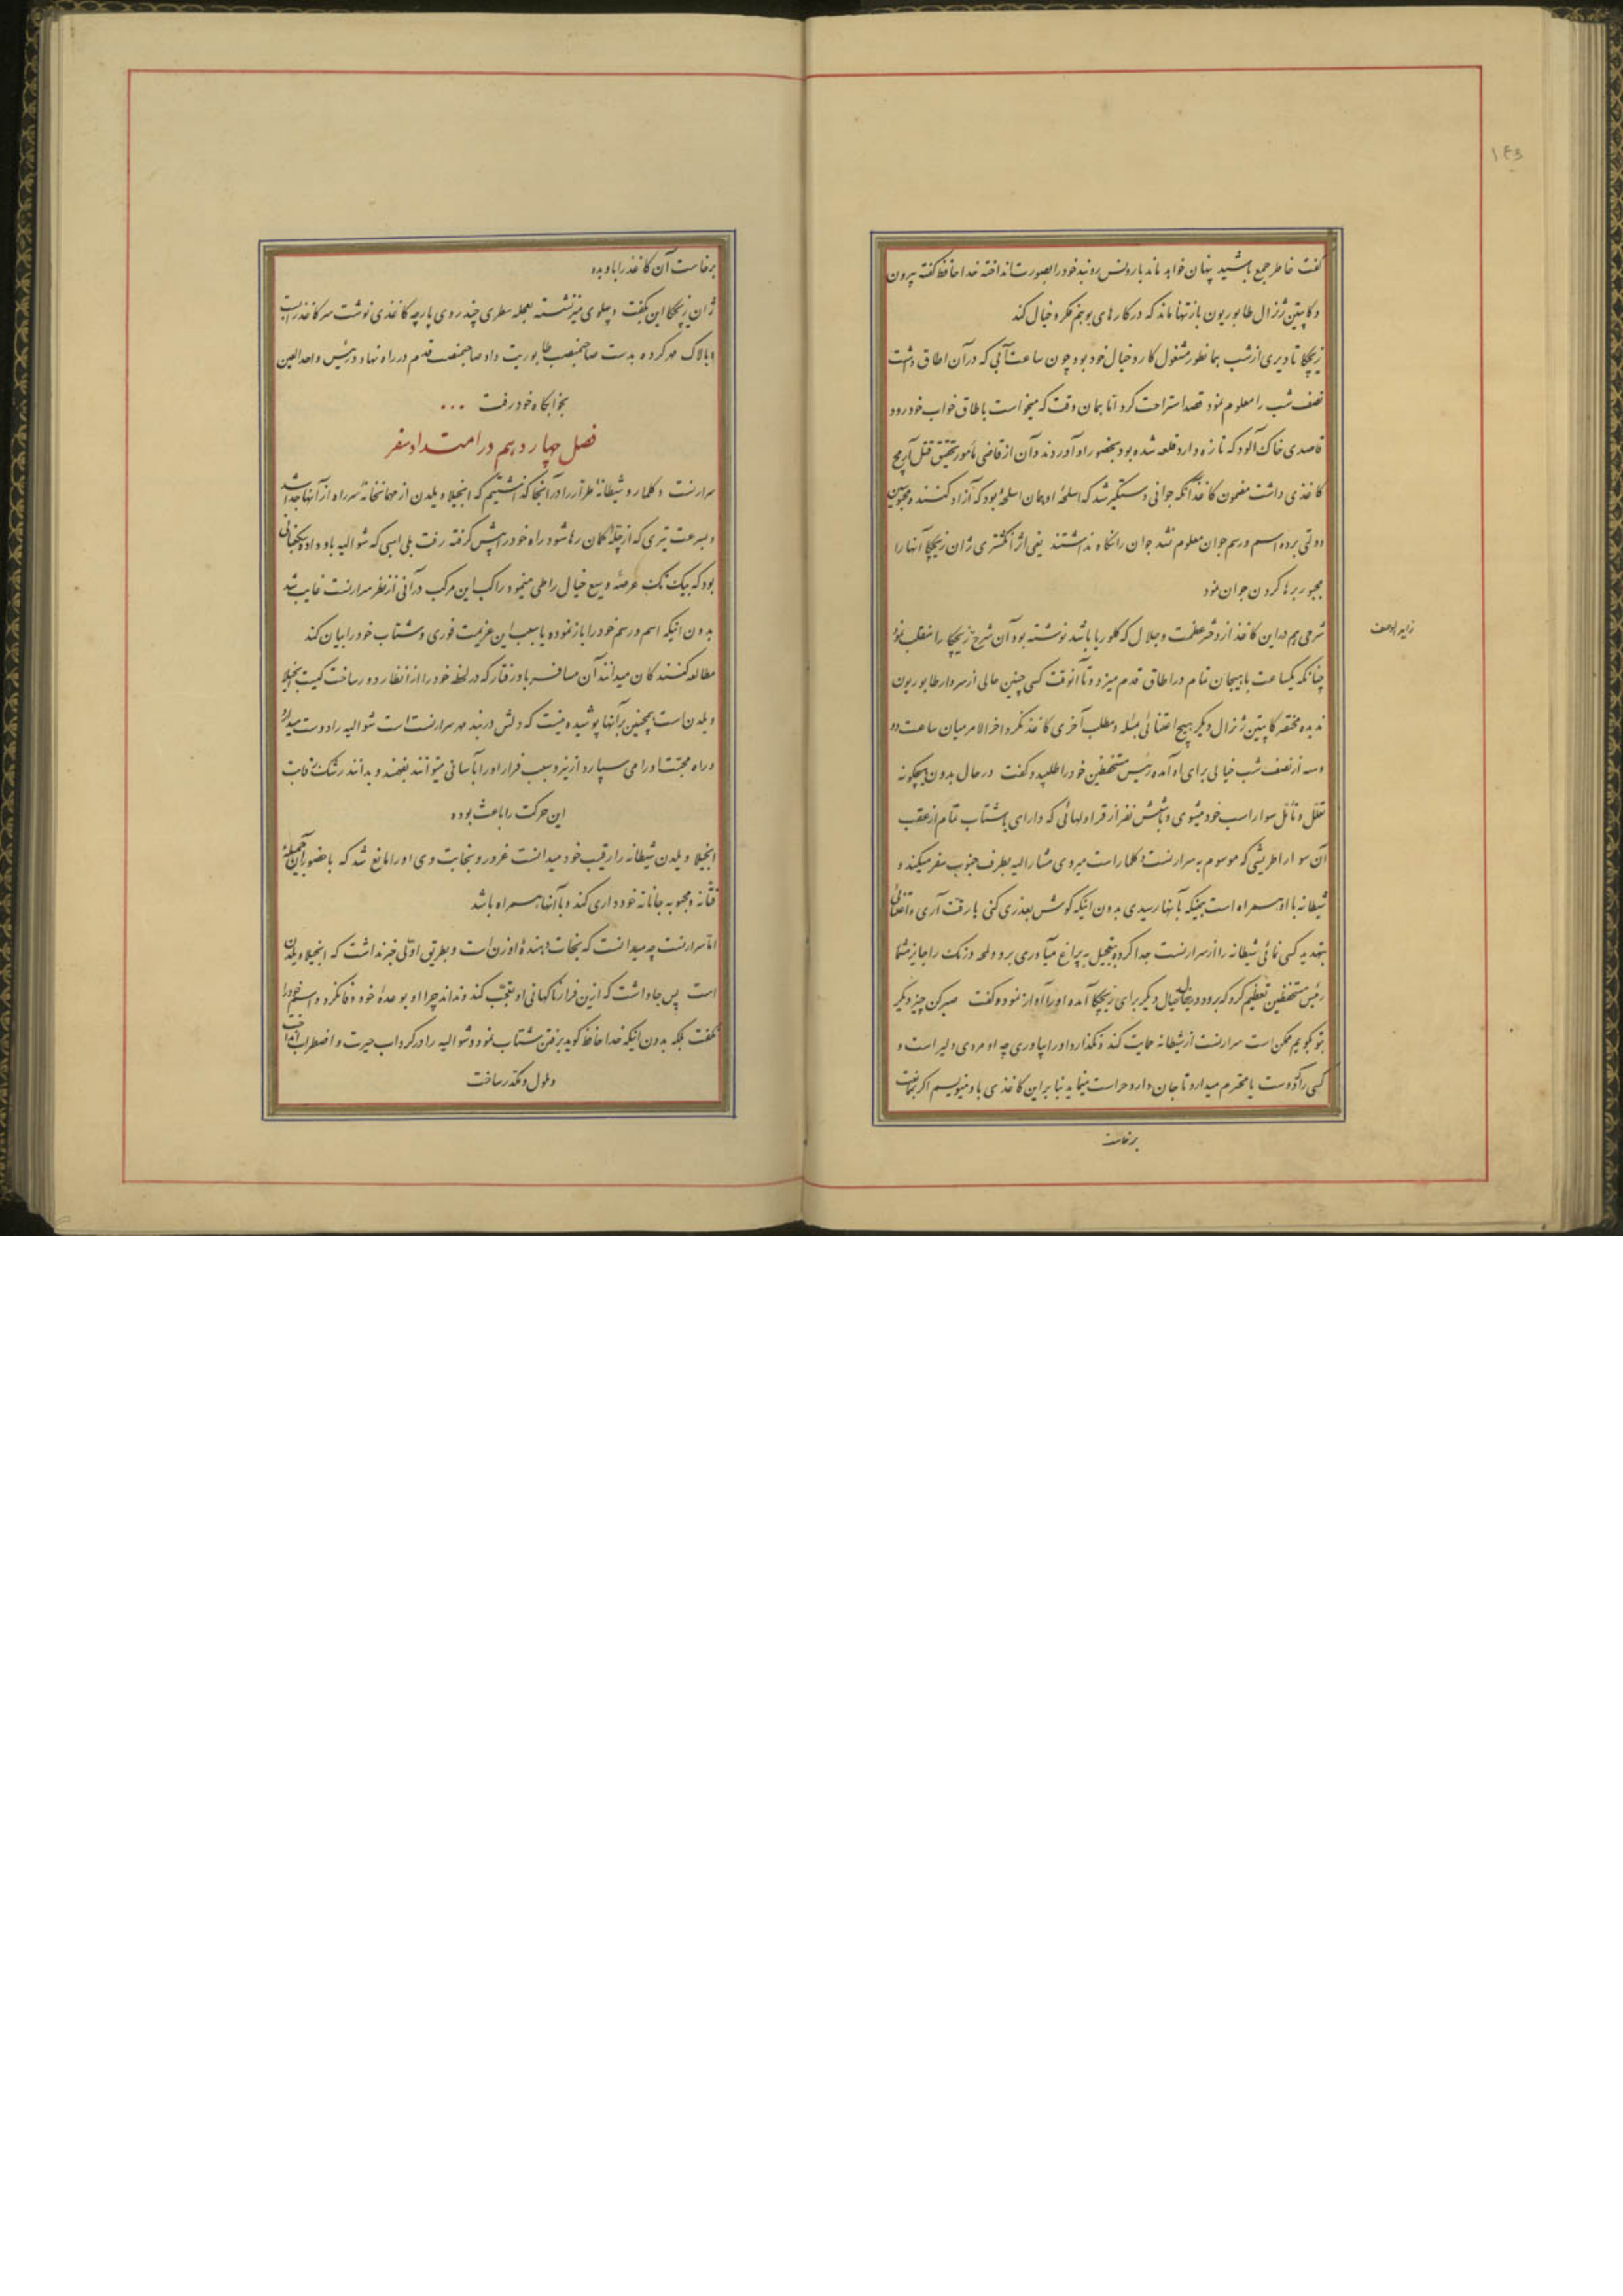 ۱۴۳
گفت خاطر جمع باشید پنهان خواهد ماند بارونس روبند خود را بصورت انداخته خدا حافظ گفته بیرون
و کاپیتن ژنرال طابوریون باز تنها ماند که در کارهای بوهم فکر و خیال کند
زیچکا تا دیری از شب بهمانطور مشغول کار و خیال خود بود چون ساعت آبی که در آن اطاق داشت
نصف شب را معلوم نمود قصد استراحت کرد اما همان وقت که میخواست باطاق خواب خود رود
قاصدی خاک آلود که تازه وارد قلعه شده بود بحضور او آوردند و آن از قاضی مأمور تحقیق قتل
کاغذی داشت مضمون کاغذ آنکه جوانی دستگیر شد که اسلحهٔ او همان اسلحهٔ بود که آزاد کنند و محبوسین
دولتی برده اسم و رسم جوان معلوم نشد جوان را نگاه نداشتند یعنی اثر انگشتری ژان زیچکا آنها را
مجبور برها کردن جوان نمود
شرحی هم در این کاغذ از دختر عظمت و جلال که کلوریا باشد نوشته بود آن شرح زیچکا را منقلب نمود
چنانکه یکساعت با هیجان تمام در اطاق قدم میزد و تا آنوقت کسی چنین حالی از سردار طابوریون
ندیده مختصر کاپیتن ژنرال دیگر هیچ اعتنائی بمسئله و مطلب آخری کاغذ نکرد و اخر الامر میان ساعت دو
و سه از نصف شب خیالی برای او آمده رئیس مستحفظین خود را طلبید و گفت در حال بدون هیچگونه
تعلل و تأمل سوار اسب خود میشوی و با شش نفر از قراولهائی که دارای با شتاب تمام از عقب
آن سوار اطریشی که موسوم به سرارنست دکلمار است میروی مشارالیه بطرف جنوب سفر میکند و
شیطانه با او همراه است همینکه بآنها رسیدی بدون اینکه گوش بعذری کنی یا رقت آری و اعتنائی
بتهدید کسی نمائی شیطانه را از سرارنست جدا کرده بتعجیل به پراغ میآوری برو و لمحه درنگ را جایز مشمار
رئیس مستحفظین تعظیم کرد که برود در اینحال خیال دیگر برای زیچکا آمده او را آواز نموده گفت صبر کن چیز دیگر
بتو بگویم ممکن است سرارنست از شیطانه حمایت کند و نگذارد او را بیاوری چه او مردی دلیر است و
کسی را که دوست یا محترم میدارد تا جان دارد حراست مینماید بنابراین کاغذی باو مینویسم اگر بممانعت
برخاست
برخاست آن کاغذ را باو بده
ژان زیچکا این بگفت و پهلوی میز نشسته بعجله سطری چند روی پارچه کاغذی نوشت سر کاغذ را بست
و بالاک مهر کرده بدست صاحبمنصب طابوریت داد صاحبمنصب قدم در راه نهاد و رئیس واحد العین
بخوابگاه خود رفت ...
فصل چهاردهم در امتداد سفر
سرارنست دکلمار و شیطانهٔ طرار را در آنجا گذاشتیم که انجیلا ویلدن از مهمانخانهٔ سر راه از آنها جدا شد
و بسرعت تیری که از چلهٔ کمان رها شود راه خود را پیش گرفته رفت بلی اسبی که شوالیه باو داده یکخانی
بود که بیک تک عرصهٔ وسیع خیال را طی مینمود راکب این مرکب در آنی از نظر سرارنست غایب شد
بدون اینکه اسم و رسم خود را باز نموده یا سبب این عزیمت فوری و شتاب خود را بیان کند
مطالعه کنندگان میدانند آن مسافر بادرفتار که در لحظهٔ خود را از انظار دور ساخت کیست انجیلا
ویلدن است همچنین بر آنها پوشیده نیست که دلش در بند مهر سرارنست است شوالیه را دوست میدارد
و راه محبت او را می سپارد ازینرو سبب فرار او را بآسانی میتوانند بفهمند و بدانند رشک رقابت
این حرکت را باعث بوده
انجیلا ویلدن شیطانه را رقیب خود میدانست غرور و نجابت وی او را مانع شد که با حضور آن جمیلهٔ
فتانه و محبوبه جانانه خودداری کند و با آنها همراه باشد
اما سرارنست چه میدانست که نجات دهندهٔ او زن است و بطریق اولی خبر نداشت که انجیلا ویلدن
است پس جا داشت که ازین فرار ناگهانی او تعجب کند و نداند چرا او بوعدهٔ خود وفا نکرد و اسم خود را
نگفت بلکه بدون اینکه خدا حافظ گوید برفتن شتاب نمود و شوالیه را در گرداب حیرت و اضطراب انداخت
و ملول و مکدر ساخت